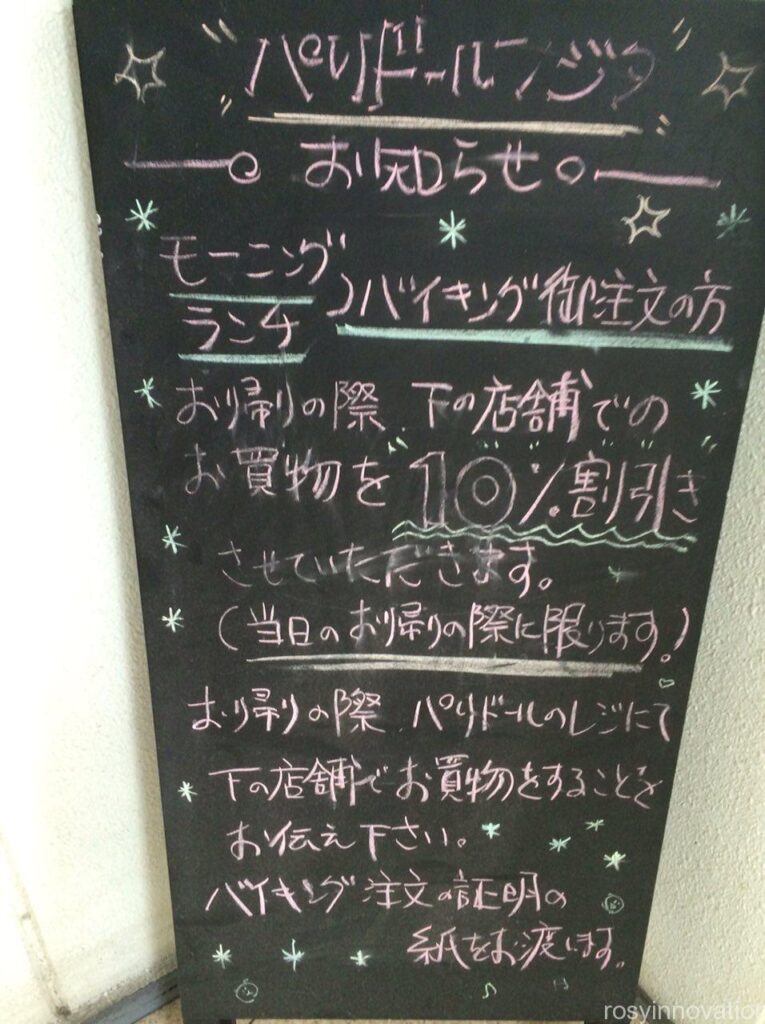 "パリドールフジタ"
お知らせ
モーニング
ランチ
)バイキング御注文の方
お帰りの際、下の店舗での
お買物を10%割引き
させていただきます。
(当日のお帰りの際に限ります!)
お帰りの際、パリドールのレジにて
下の店舗でお買物をすることを
お伝え下さい。
バイキング注文の証明の
紙をお渡します。
rosyinnovation